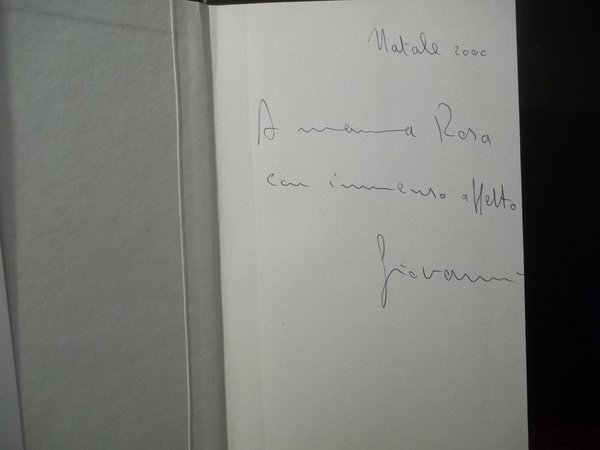 Natale 2000
A mamma Rosa
con immenso affetto
Giovanni